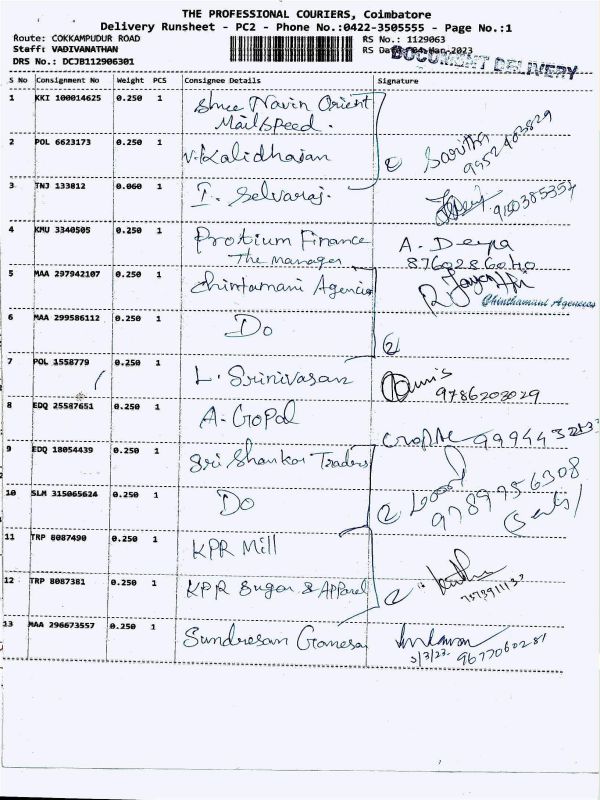 THE PROFESSIONAL COURIERS, Coimbatore
Delivery Runsheet - PC2 - Phone No.:0422-3505555 - Page No.:1
Route: COKKAMPUDUR ROAD
RS No.: 1129063
Staff: VADIVANATHAN
RS Date: 04-Mar-2023
DOCUMENT DELIVERY
DRS No.: DCJB112906301
S No Consignment No Weight PCS Consignee Details Signature
1 KKI 100014625 0.250 1 Shree Navin Orient
Mailspeed.
2 POL 6623173 0.250 1 V. Kalidhasan
② Savitha
9952403829
3 TNJ 133012 0.060 1 I. Selvaraj.
9100385357
4 KMU 3340505 0.250 1 Protium Finance
The Manager
A. Deepa
8760286040
5 MAA 297942107 0.250 1 Chintamani Agencies
Chinthamani Agencies
6 MAA 299586112 0.250 1 Do
②
7 POL 1558779 0.250 1 L. Srinivasan
9786203029
8 EDQ 25587651 0.250 1 A. Gopal
9 EDQ 18054439 0.250 1 Sri Shankar Traders
10 SLM 315065624 0.250 1 Do
② 9789756308
11 TRP 8087490 0.250 1 KPR Mill
12 TRP 8087381 0.250 1 KPR Sugar & Apparel
②
13 MAA 296673557 0.250 1 Sundresan Ganesa
5/3/23. 9677060281